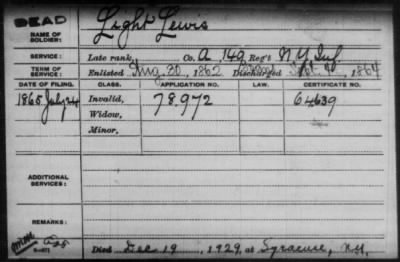 DEAD
NAME OF SOLDIER: Light Lewis
SERVICE: Late rank, Co. A 149 Reg't N.Y. Inf.
TERM OF SERVICE: Enlisted Aug. 30, 1862 Discharged Sept. , 1864
DATE OF FILING. CLASS. APPLICATION NO. LAW. CERTIFICATE NO.
1865 July 24 Invalid, 78,972 64639
Widow,
Minor,
ADDITIONAL SERVICES:
REMARKS:
Died Dec 19, 1929, at Syracuse, N.Y.